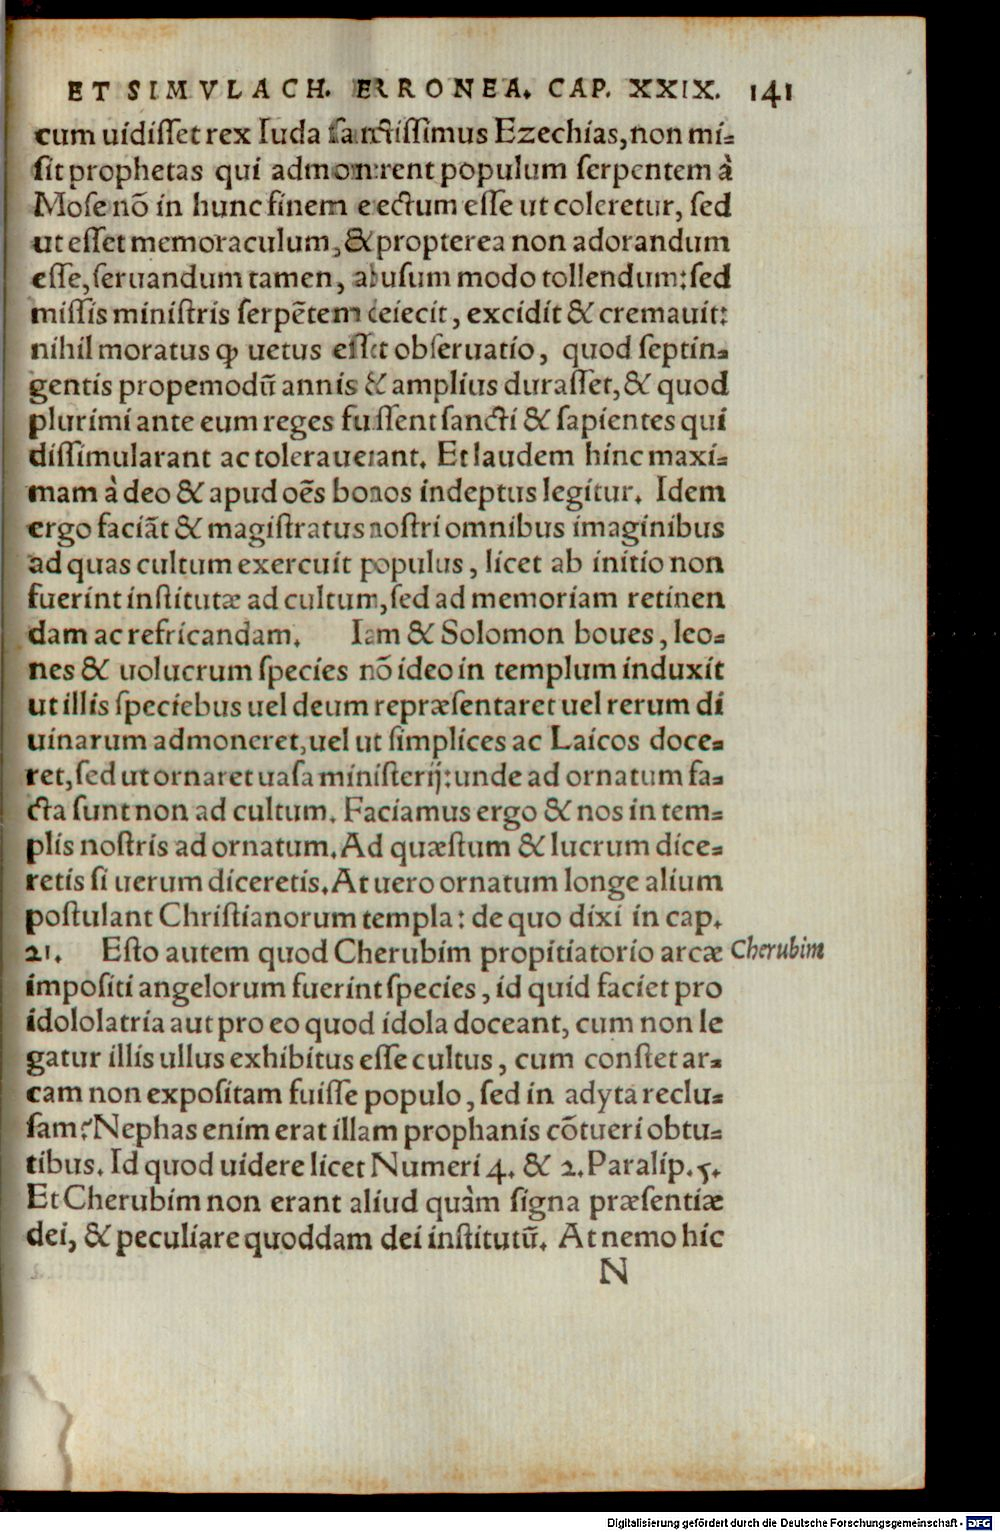 ET SIMVLACH. ERRONEA. CAP. XXIX. 141
cum uidiſſet rex Iuda ſanctiſſimus Ezechias, non mi⸗
ſit prophetas qui admonerent populum ſerpentem à
Moſe nõ in hunc finem erectum eſſe ut coleretur, ſed
ut eſſet memoraculum, & propterea non adorandum
eſſe, ſeruandum tamen, abuſum modo tollendum: ſed
miſſis miniſtris ſerpẽtem deiecit, excidit & cremauit:
nihil moratus ꝙ uetus eſſet obſeruatio, quod ſeptin⸗
gentis propemodũ annis & amplius duraſſet, & quod
plurimi ante eum reges fuiſſent ſancti & ſapientes qui
diſſimularant ac tolerauerant. Et laudem hinc maxi⸗
mam à deo & apud oẽs bonos indeptus legitur. Idem
ergo faciãt & magiſtratus noſtri omnibus imaginibus
ad quas cultum exercuit populus, licet ab initio non
fuerint inſtitutæ ad cultum, ſed ad memoriam retinen
dam ac refricandam. Iam & Solomon boues, leo⸗
nes & uolucrum ſpecies nõ ideo in templum induxit
ut illis ſpeciebus uel deum repræſentaret uel rerum di
uinarum admoneret, uel ut ſimplices ac Laicos doce⸗
ret, ſed ut ornaret uaſa miniſterij: unde ad ornatum fa⸗
cta ſunt non ad cultum. Faciamus ergo & nos in tem⸗
plis noſtris ad ornatum. Ad quæſtum & lucrum dice⸗
retis ſi uerum diceretis. At uero ornatum longe alium
poſtulant Chriſtianorum templa: de quo dixi in cap.
21. Eſto autem quod Cherubim propitiatorio arcæ Cherubim
impoſiti angelorum fuerint ſpecies, id quid faciet pro
idololatria aut pro eo quod idola doceant, cum non le
gatur illis ullus exhibitus eſſe cultus, cum conſtet ar⸗
cam non expoſitam fuiſſe populo, ſed in adyta reclu⸗
ſam? Nephas enim erat illam prophanis cõtueri obtu⸗
tibus. Id quod uidere licet Numeri 4. & 2. Paralip. 5.
Et Cherubim non erant aliud quàm ſigna præſentiæ
dei, & peculiare quoddam dei inſtitutũ. At nemo hic
N
Digitalisierung gefördert durch die Deutsche Forschungsgemeinschaft - DFG